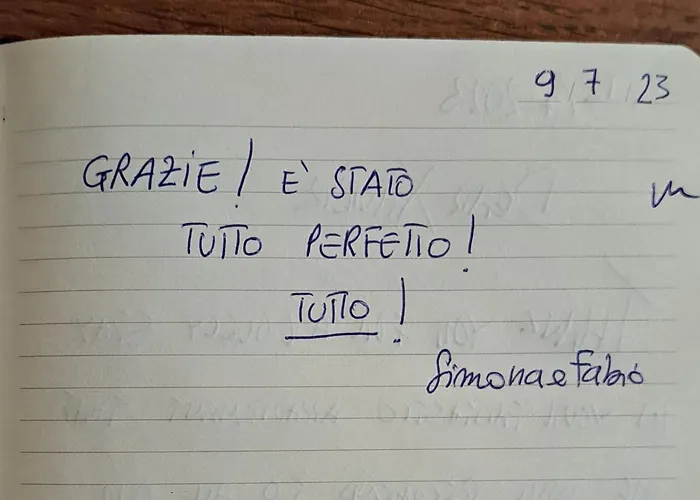 9 7 23
GRAZIE! È STATO
TUTTO PERFETTO!
TUTTO!
Simona e Fabio